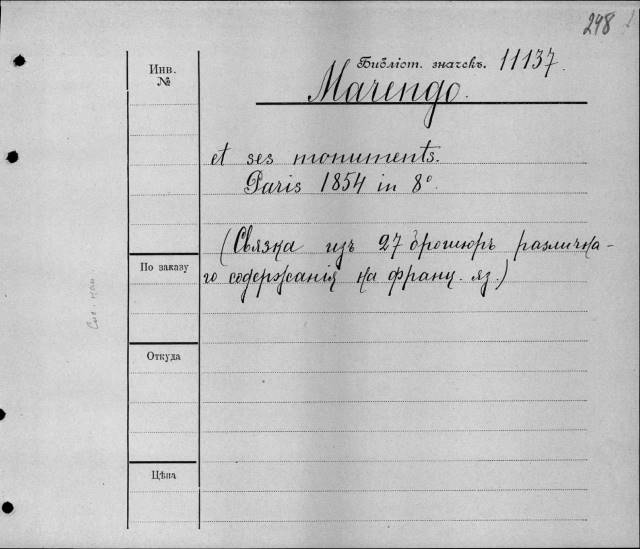 298
Библіот. значекъ. 11137.
Инв.
№
Marengo.
et ses monuments.
Paris 1854 in 8º.
(Связка изъ 27 брошюръ различна-
го содержанія на франц. яз.)
По заказу
Откуда
Цѣна